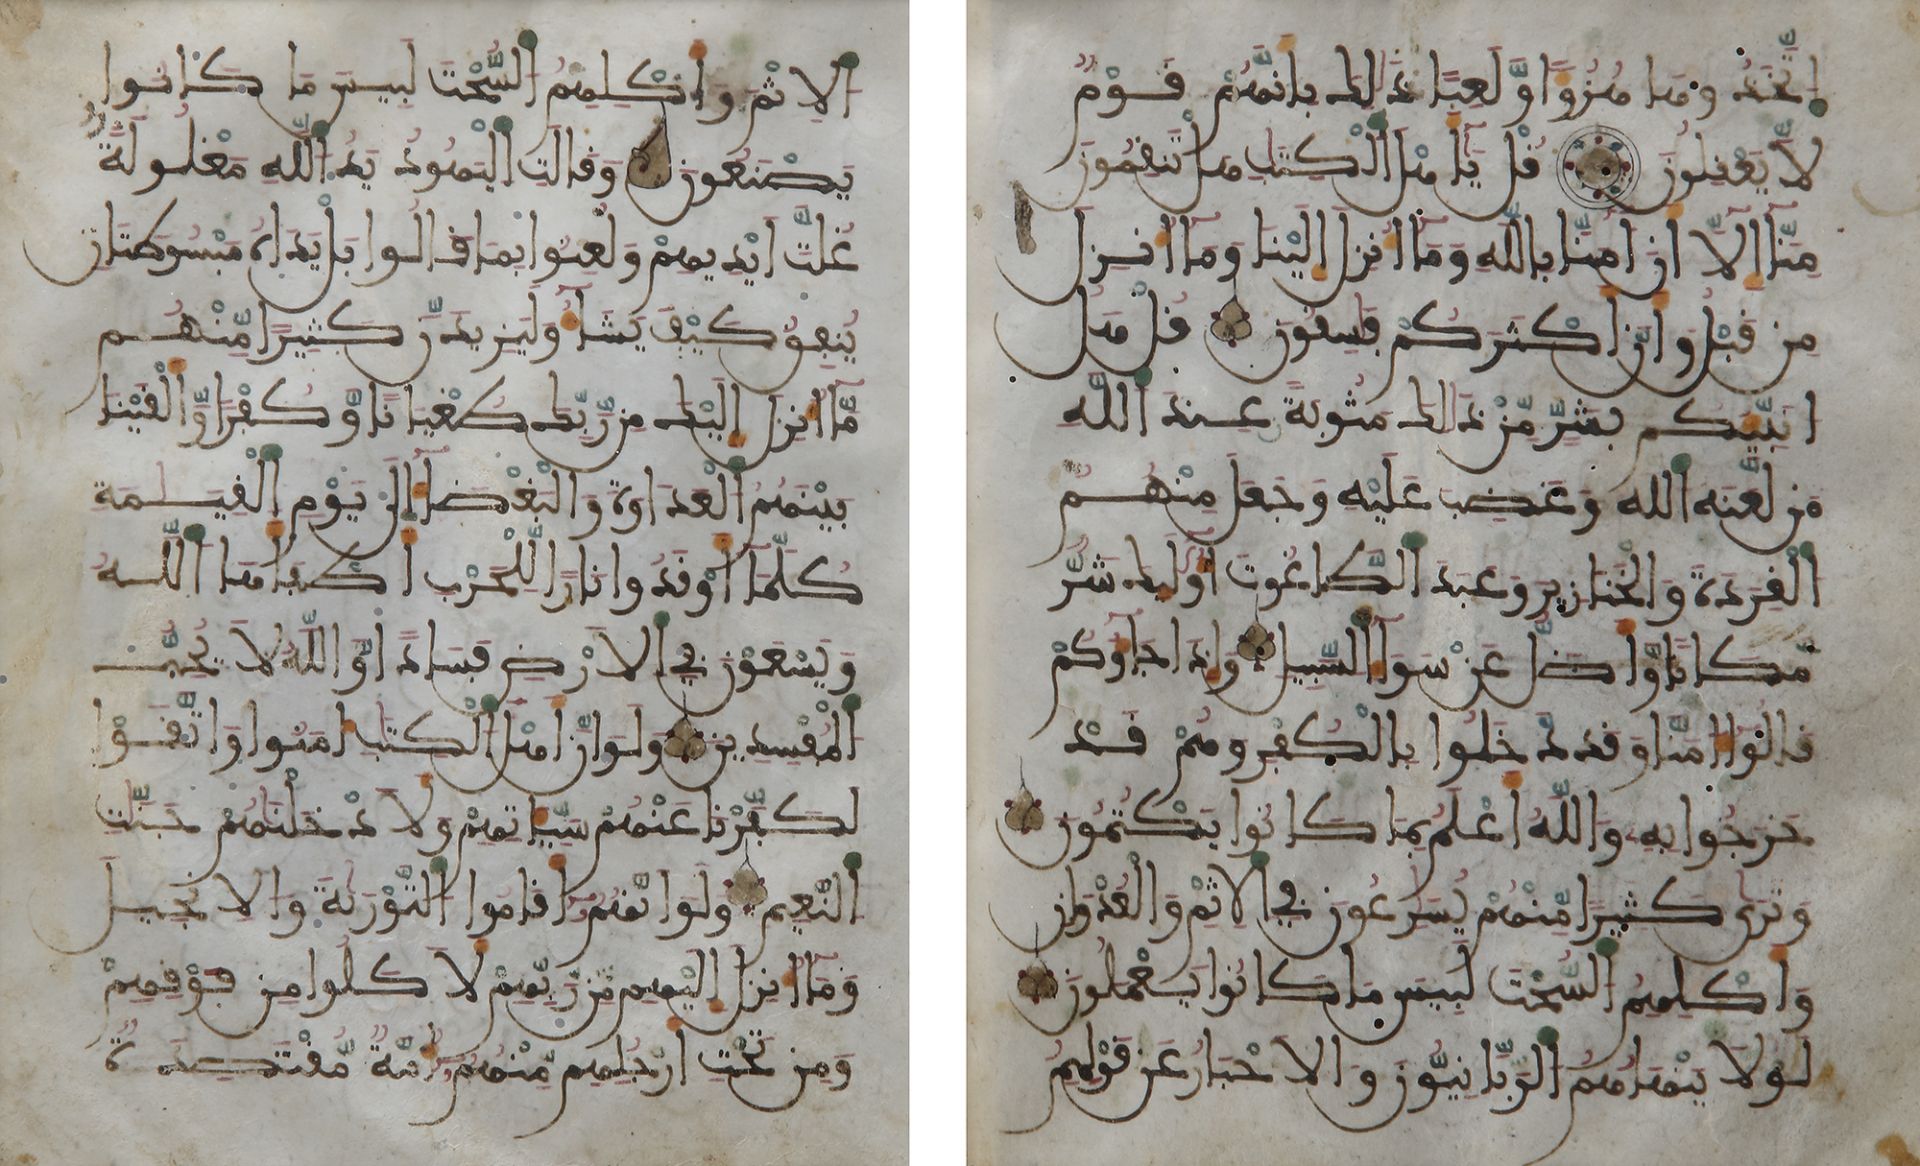 اتَّخَذُوهَا هُزُوًا وَّلَعِبًا ذَٰلِكَ بِأَنَّهُمْ قَوْمٌ
لَّا يَعْقِلُونَ قُلْ يَٰأَهْلَ الْكِتَٰبِ هَلْ تَنقِمُونَ
مِنَّا إِلَّا أَنْ ءَامَنَّا بِاللَّهِ وَمَا أُنزِلَ إِلَيْنَا وَمَا أُنزِلَ
مِن قَبْلُ وَأَنَّ أَكْثَرَكُمْ فَٰسِقُونَ قُلْ هَلْ
أُنَبِّئُكُم بِشَرٍّ مِّن ذَٰلِكَ مَثُوبَةً عِندَ اللَّهِ
مَن لَّعَنَهُ اللَّهُ وَغَضِبَ عَلَيْهِ وَجَعَلَ مِنْهُمُ
الْقِرَدَةَ وَالْخَنَازِيرَ وَعَبَدَ الطَّاغُوتَ أُولَٰئِكَ شَرٌّ
مَّكَانًا وَأَضَلُّ عَن سَوَاءِ السَّبِيلِ وَإِذَا جَاءُوكُمْ
قَالُوا ءَامَنَّا وَقَد دَّخَلُوا بِالْكُفْرِ وَهُمْ قَدْ
خَرَجُوا بِهِ وَاللَّهُ أَعْلَمُ بِمَا كَانُوا يَكْتُمُونَ
وَتَرَىٰ كَثِيرًا مِّنْهُمْ يُسَٰرِعُونَ فِي الْإِثْمِ وَالْعُدْوَٰنِ
وَأَكْلِهِمُ السُّحْتَ لَبِيسَ مَا كَانُوا يَعْمَلُونَ
لَوْلَا يَنْهَاهُمُ الرَّبَّانِيُّونَ وَالْأَحْبَارُ عَن قَوْلِهِمُ
الْإِثْمَ وَأَكْلِهِمُ السُّحْتَ لَبِيسَ مَا كَانُوا
يَصْنَعُونَ وَقَالَتِ الْيَهُودُ يَدُ اللَّهِ مَغْلُولَةٌ
غُلَّتْ أَيْدِيهِمْ وَلُعِنُوا بِمَا قَالُوا بَلْ يَدَاهُ مَبْسُوطَتَانِ
يُنفِقُ كَيْفَ يَشَاءُ وَلَيَزِيدَنَّ كَثِيرًا مِّنْهُم
مَّا أُنزِلَ إِلَيْكَ مِن رَّبِّكَ طُغْيَانًا وَّكُفْرًا وَّأَلْقَيْنَا
بَيْنَهُمُ الْعَدَاوَةَ وَالْبَغْضَاءَ إِلَىٰ يَوْمِ الْقِيَٰمَةِ
كُلَّمَا أَوْقَدُوا نَارًا لِّلْحَرْبِ أَطْفَأَهَا اللَّهُ
وَيَسْعَوْنَ فِي الْأَرْضِ فَسَادًا وَّاللَّهُ لَا يُحِبُّ
الْمُفْسِدِينَ وَلَوْ أَنَّ أَهْلَ الْكِتَٰبِ ءَامَنُوا وَاتَّقَوْا
لَكَفَّرْنَا عَنْهُمْ سَيِّئَاتِهِمْ وَلَأَدْخَلْنَٰهُمْ جَنَّٰتِ
النَّعِيمِ وَلَوْ أَنَّهُمْ أَقَامُوا التَّوْرَىٰةَ وَالْإِنجِيلَ
وَمَا أُنزِلَ إِلَيْهِم مِّن رَّبِّهِمْ لَأَكَلُوا مِن فَوْقِهِمْ
وَمِن تَحْتِ أَرْجُلِهِم مِّنْهُمْ أُمَّةٌ مُّقْتَصِدَةٌ